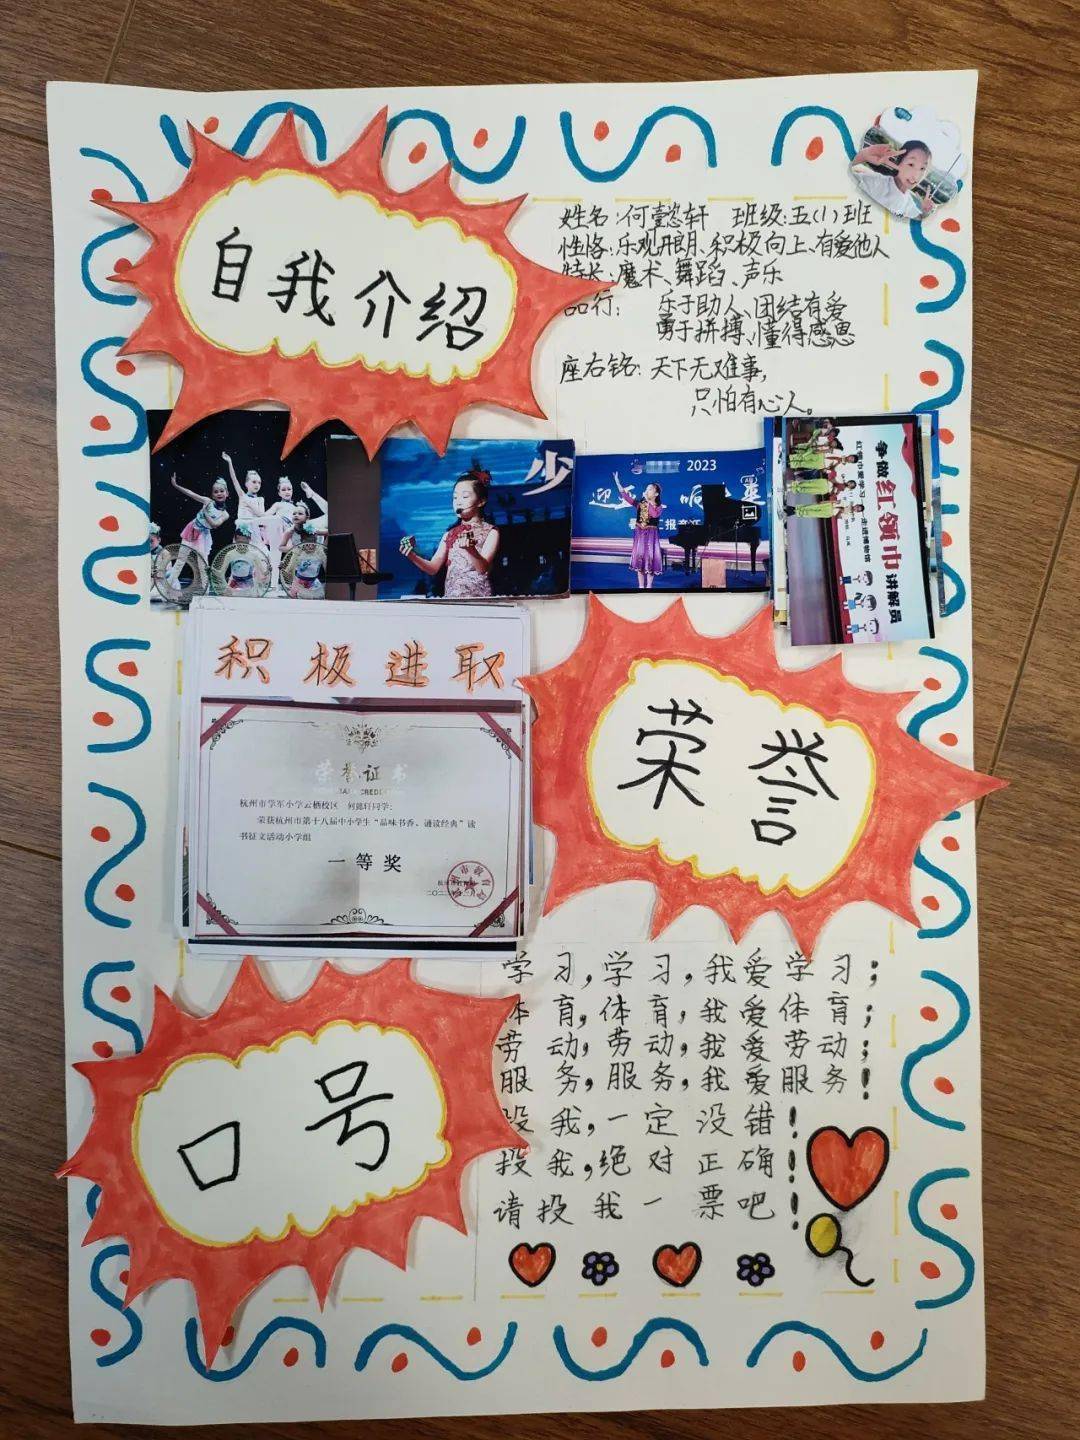 自我介绍
姓名:何懿轩 班级:五(1)班
性格:乐观开朗、积极向上、有爱他人
特长:魔术、舞蹈、声乐
品行: 乐于助人、团结有爱
勇于拼搏、懂得感恩
座右铭:天下无难事,
只怕有心人。
少
2023
争做红领巾讲解员
积极进取
荣誉证书
杭州市学军小学云栖校区 何懿轩同学:
荣获杭州市第十八届中小学生“品味书香、诵读经典”读
书征文活动小学组
一等奖
荣誉
口号
学习,学习,我爱学习;
体育,体育,我爱体育;
劳动,劳动,我爱劳动;
服务,服务,我爱服务!
投我,一定没错!
投我,绝对正确!
请投我一票吧!